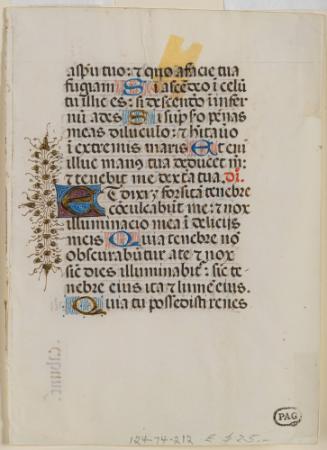 aspũ tuo: ⁊ quo a facie tua
fugiam Si ascẽdeo ĩ celũ
tu illic es: si descendo ĩ infer
nũ ades Si sũpso penas
meas diluculo: ⁊ hitauo
ĩ extremis maris Et eni
illuc manꝰ tua deducet m:
⁊ tenebit me dextã tua. dĩ.
Et dixi forsitã tenebre
cõculcabũt me: ⁊ nox
illuminacio mea ĩ delicijs
meis Quia tenebre nõ
obscurabũtur a te ⁊ nox
sic dies illuminabiť: sic te
nebre eius ita ⁊ lumẽ eius.
Quia tu possedisti renes
PAG
124-74-212 E $25.-